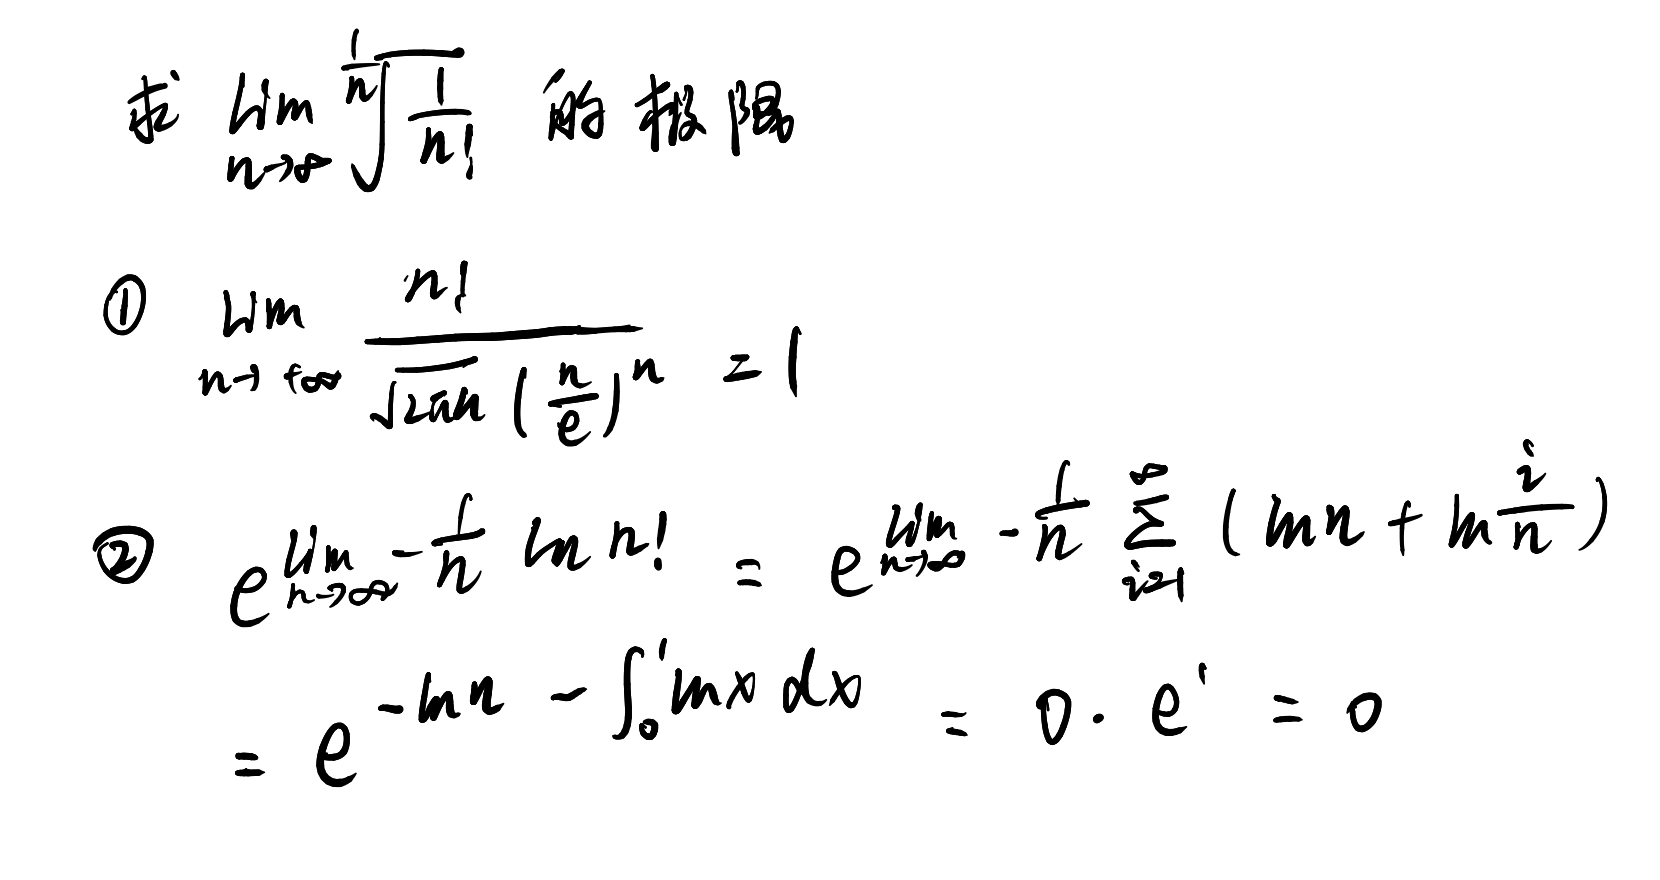 求 lim_{n→∞} \sqrt[\frac{1}{n}]{\frac{1}{n!}} 的极限
① lim_{n→+∞} \frac{n!}{\sqrt{2πn} (\frac{n}{e})^n} = 1
② e^{lim_{n→∞} -\frac{1}{n} ln n!} = e^{lim_{n→∞} -\frac{1}{n} \sum_{i=1}^{∞} (ln n + ln \frac{i}{n})}
= e^{-ln n - \int_0^1 ln x dx} = 0 · e^1 = 0